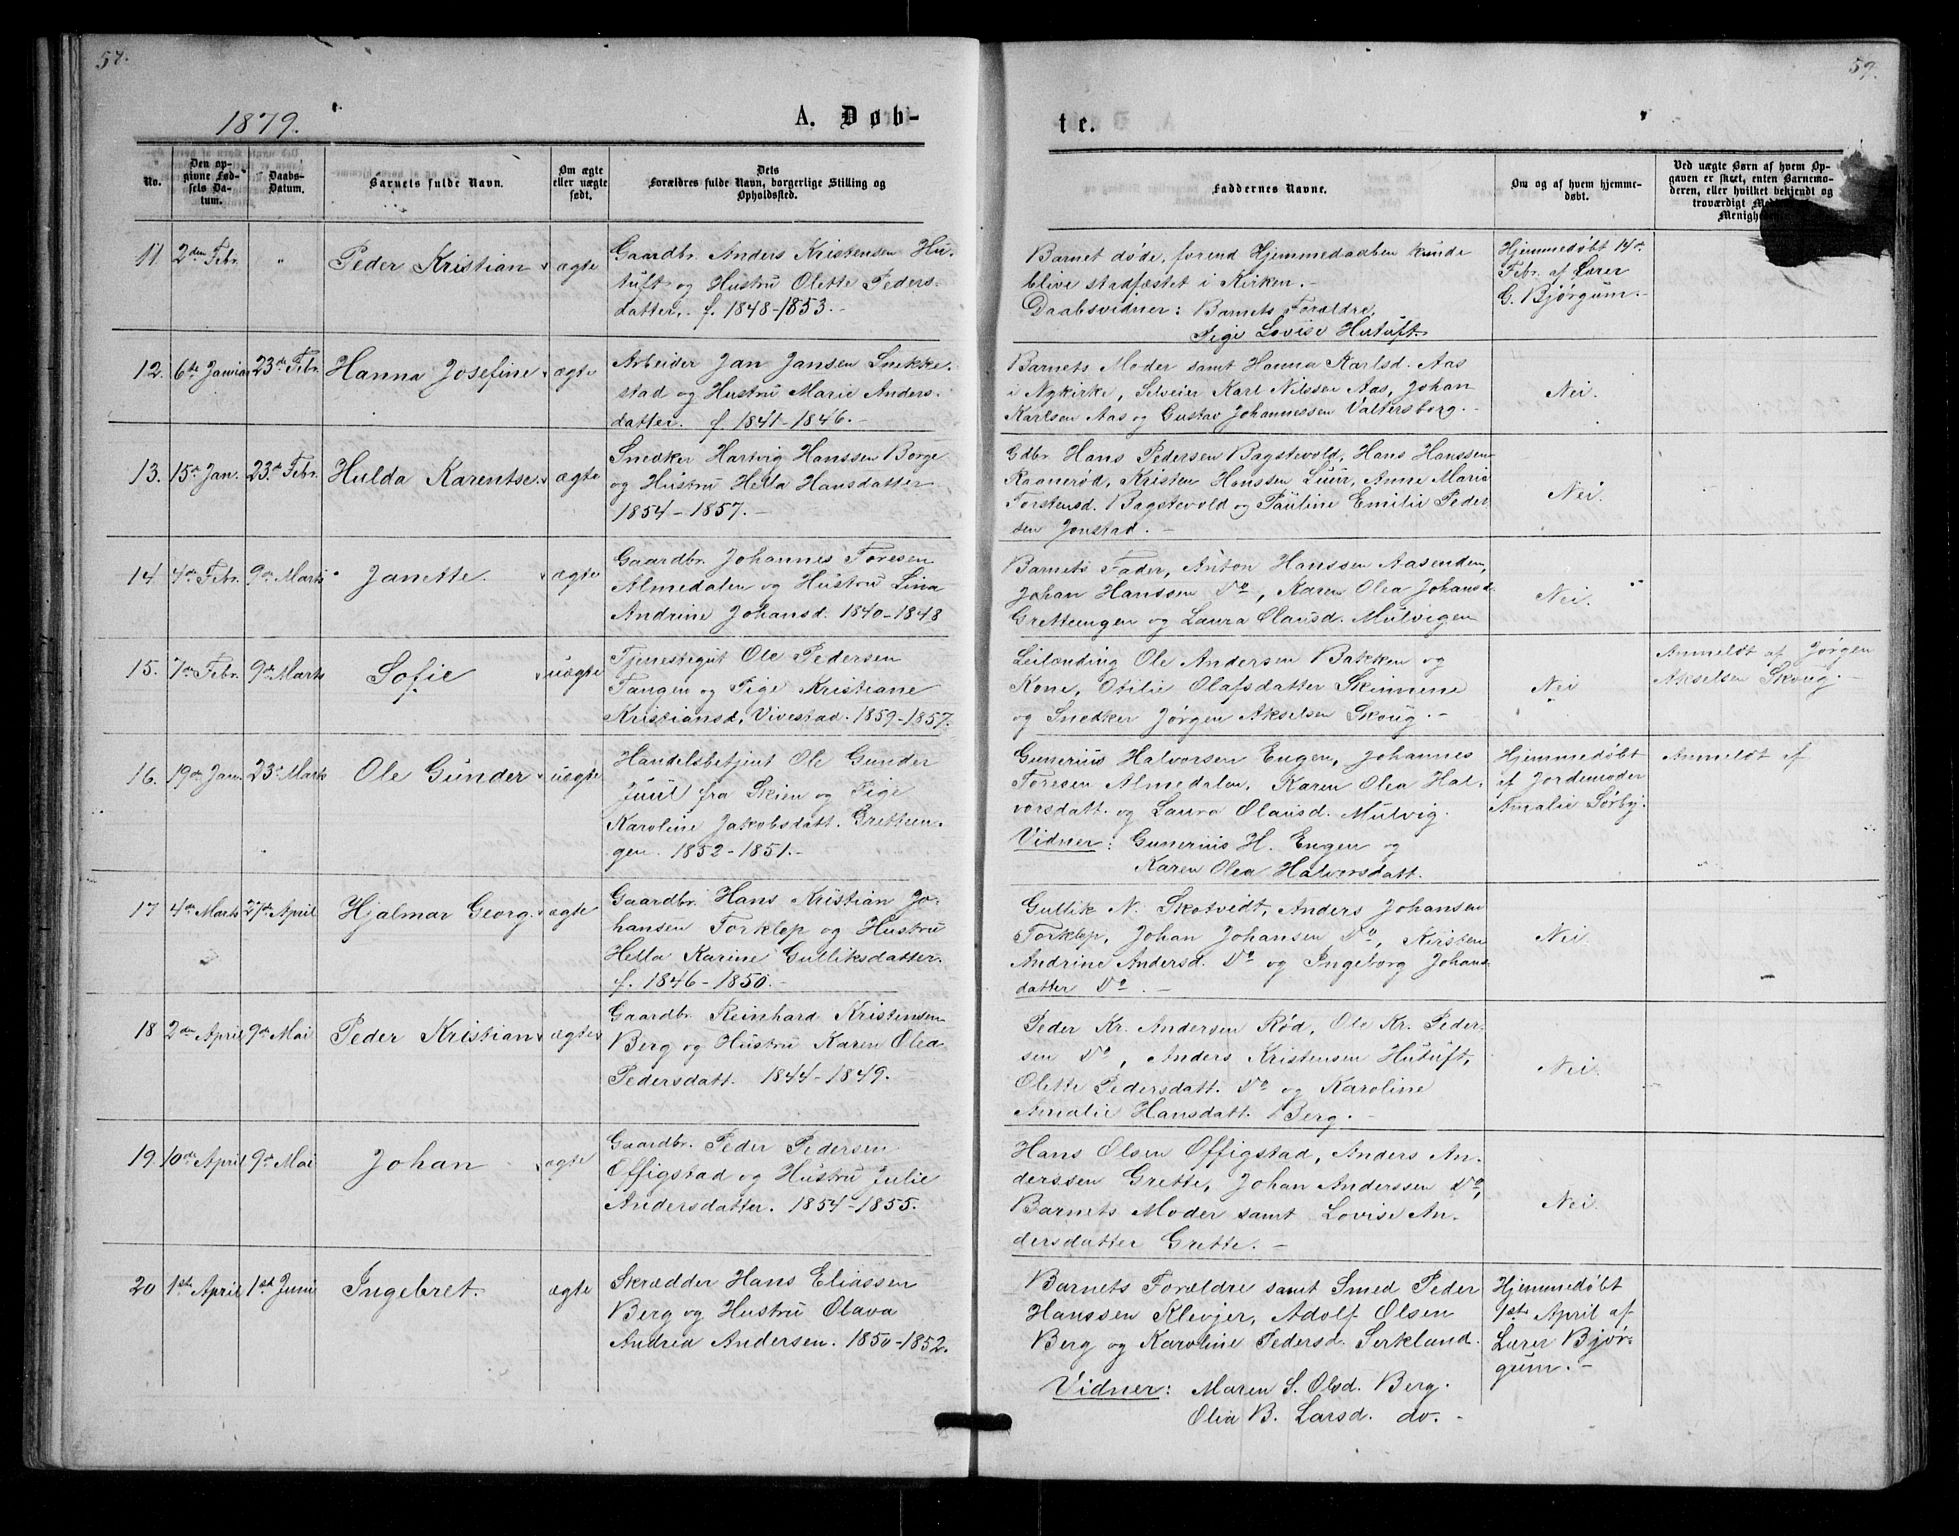 57.
59.
1879.
A. Døb-
te.
No.
Den op-
givne Fød-
sels Da-
tum.
Daabs-
Datum.
Barnets fulde Navn.
Om ægte
eller uægte
født.
Dets
Forældres fulde Navn, borgerlige Stilling og
Opholdssted.
Faddernes Navne.
Om og af hvem hjemme-
døbt.
Ved uægte Børn af hvem Op-
gaven er sket, enten Barnemo-
deren, eller hvilket bekjendt og
troværdigt Med
Menighe
11 2den Febr. " Peder Kristian ægte
Gaardbr. Anders Kristensen Hu-
tuft og Hustru Olette Peders-
datter. f. 1848-1853.-
Barnet døde, forend Hjemmedaaben kunde
blive stadfæstet i Kirken.-
Daabsvidner: Barnets Forældre,
Pige Lovise Hutuft.
Hjemmedøbt 14de
Febr. af Lærer
G. Bjørgum.-
12. 6te Januar 23de Febr. Hanna Josefine ægte
Arbeider Jan Jansen Snekke-
stad og Hustru Marie Anders-
datter. f 1841-1846.-
Barnets Moder samt Hanna Karlsd. Aas
i Nykirke, Selveier Karl Nilssen Aas, Johan
Karlsen Aas og Gustav Johannessen Valtersborg.-
Nei.
13. 15de Jan. 23de Febr. Hulda Karentse. ægte
Snedker Hartvig Hanssen Borge
og Hustru Hella Hansdatter
1854-1857.-
Gdbr. Hans Pedersen Bagstevold, Hans Hanssen
Raanerød, Kristen Hanssen Luur, Anne Marie
Torstensd. Bagstevold og Pauline Emilie Peder-
sen Jonstad.-
Nei.
14. 4de Febr. 9de Marts Janette. ægte
Gaardbr. Johannes Toresen
Almedalen og Hustru Lina
Andrine Johansd. 1840-1848
Barnets Fader, Anton Hanssen Aasenden,
Johan Hanssen Do, Karen Olea Johansd.
Gretteengen og Laura Olausd. Mulvigen
Nei.
15. 7de Febr. 9de Marts Sofie uægte
Tjenestegut Ole Pedersen
Tangen og Pige Kristiane
Kristiansd. Vivestad. 1859-1857.
Leilænding Ole Andersen Bakken og
Kone, Otilie Olafsdatter Skinnene
og Snedker Jørgen Akselsen Skoug.-
Nei
Anmeldt af Jørgen
Akselsen Skoug.-
16. 19de Jan. 23de Marts Ole Gunder uægte
Handelsbetjent Ole Gunder
Juul fra Skien og Pige
Karoline Jakobsdatt. Gretteen-
gen. 1852-1851.-
Gunerius Halvorsen Engen, Johannes
Toresen Almedalen, Karen Olea Hal-
vorsdatt. og Laura Olausd. Mulvig.
Vidner: Gunerius H. Engen og
Karen Olea Halvorsdatt.
Hjemmedøbt
af Jordemoder
Amalie Sørby.
Anmeldt af
17 4de Marts 27de April Hjalmar Georg. ægte
Gaardbr. Hans Kristian Jo-
hansen Torklep og Hustru
Hella Karine Gulliksdatter.
f. 1846-1850.-
Gullik N. Skotvedt, Anders Johansen
Torklep, Johan Johansen Do, Kirsten
Andrine Andersd. Do og Ingeborg Johans-
datter Do.-
Nei.
-
18 2den April 9de Mai Peder Kristian ægte
Gaardbr. Reinhard Kristensen
Berg og Hustru Karen Olea
Pedersdatt. 1844-1849.
Peder Kr. Andersen Rød, Ole Kr. Peder-
sen Do, Anders Kristensen Hutuft,
Olette Pedersdatt. Do og Karoline
Amalie Hansdatt. Berg.-
Nei.
19. 10de April 9de Mai Johan ægte
Gaardbr. Peder Pedersen
Offigstad og Hustru Julie
Andersdatter. 1854-1855.
Hans Olsen Offigstad, Anders An-
derssen Grette, Johan Anderssen Do,
Barnets Moder samt Lovise An-
dersdatter Grette.-
Nei.
20 1ste April 1ste Juni Ingebret. ægte
Skrædder Hans Eliassen
Berg og Hustru Olava
Andrea Andersen. 1850-1852.
Barnets Forældre samt Smed Peder
Hanssen Klevjer, Adolf Olsen
Berg og Karoline Pedersd. Serkland.
Vidner: Maren S. Olsd. Berg.
Olea B. Larsd. do.-
Hjemmedøbt
1ste April af
Lærer Bjør-
gum.-